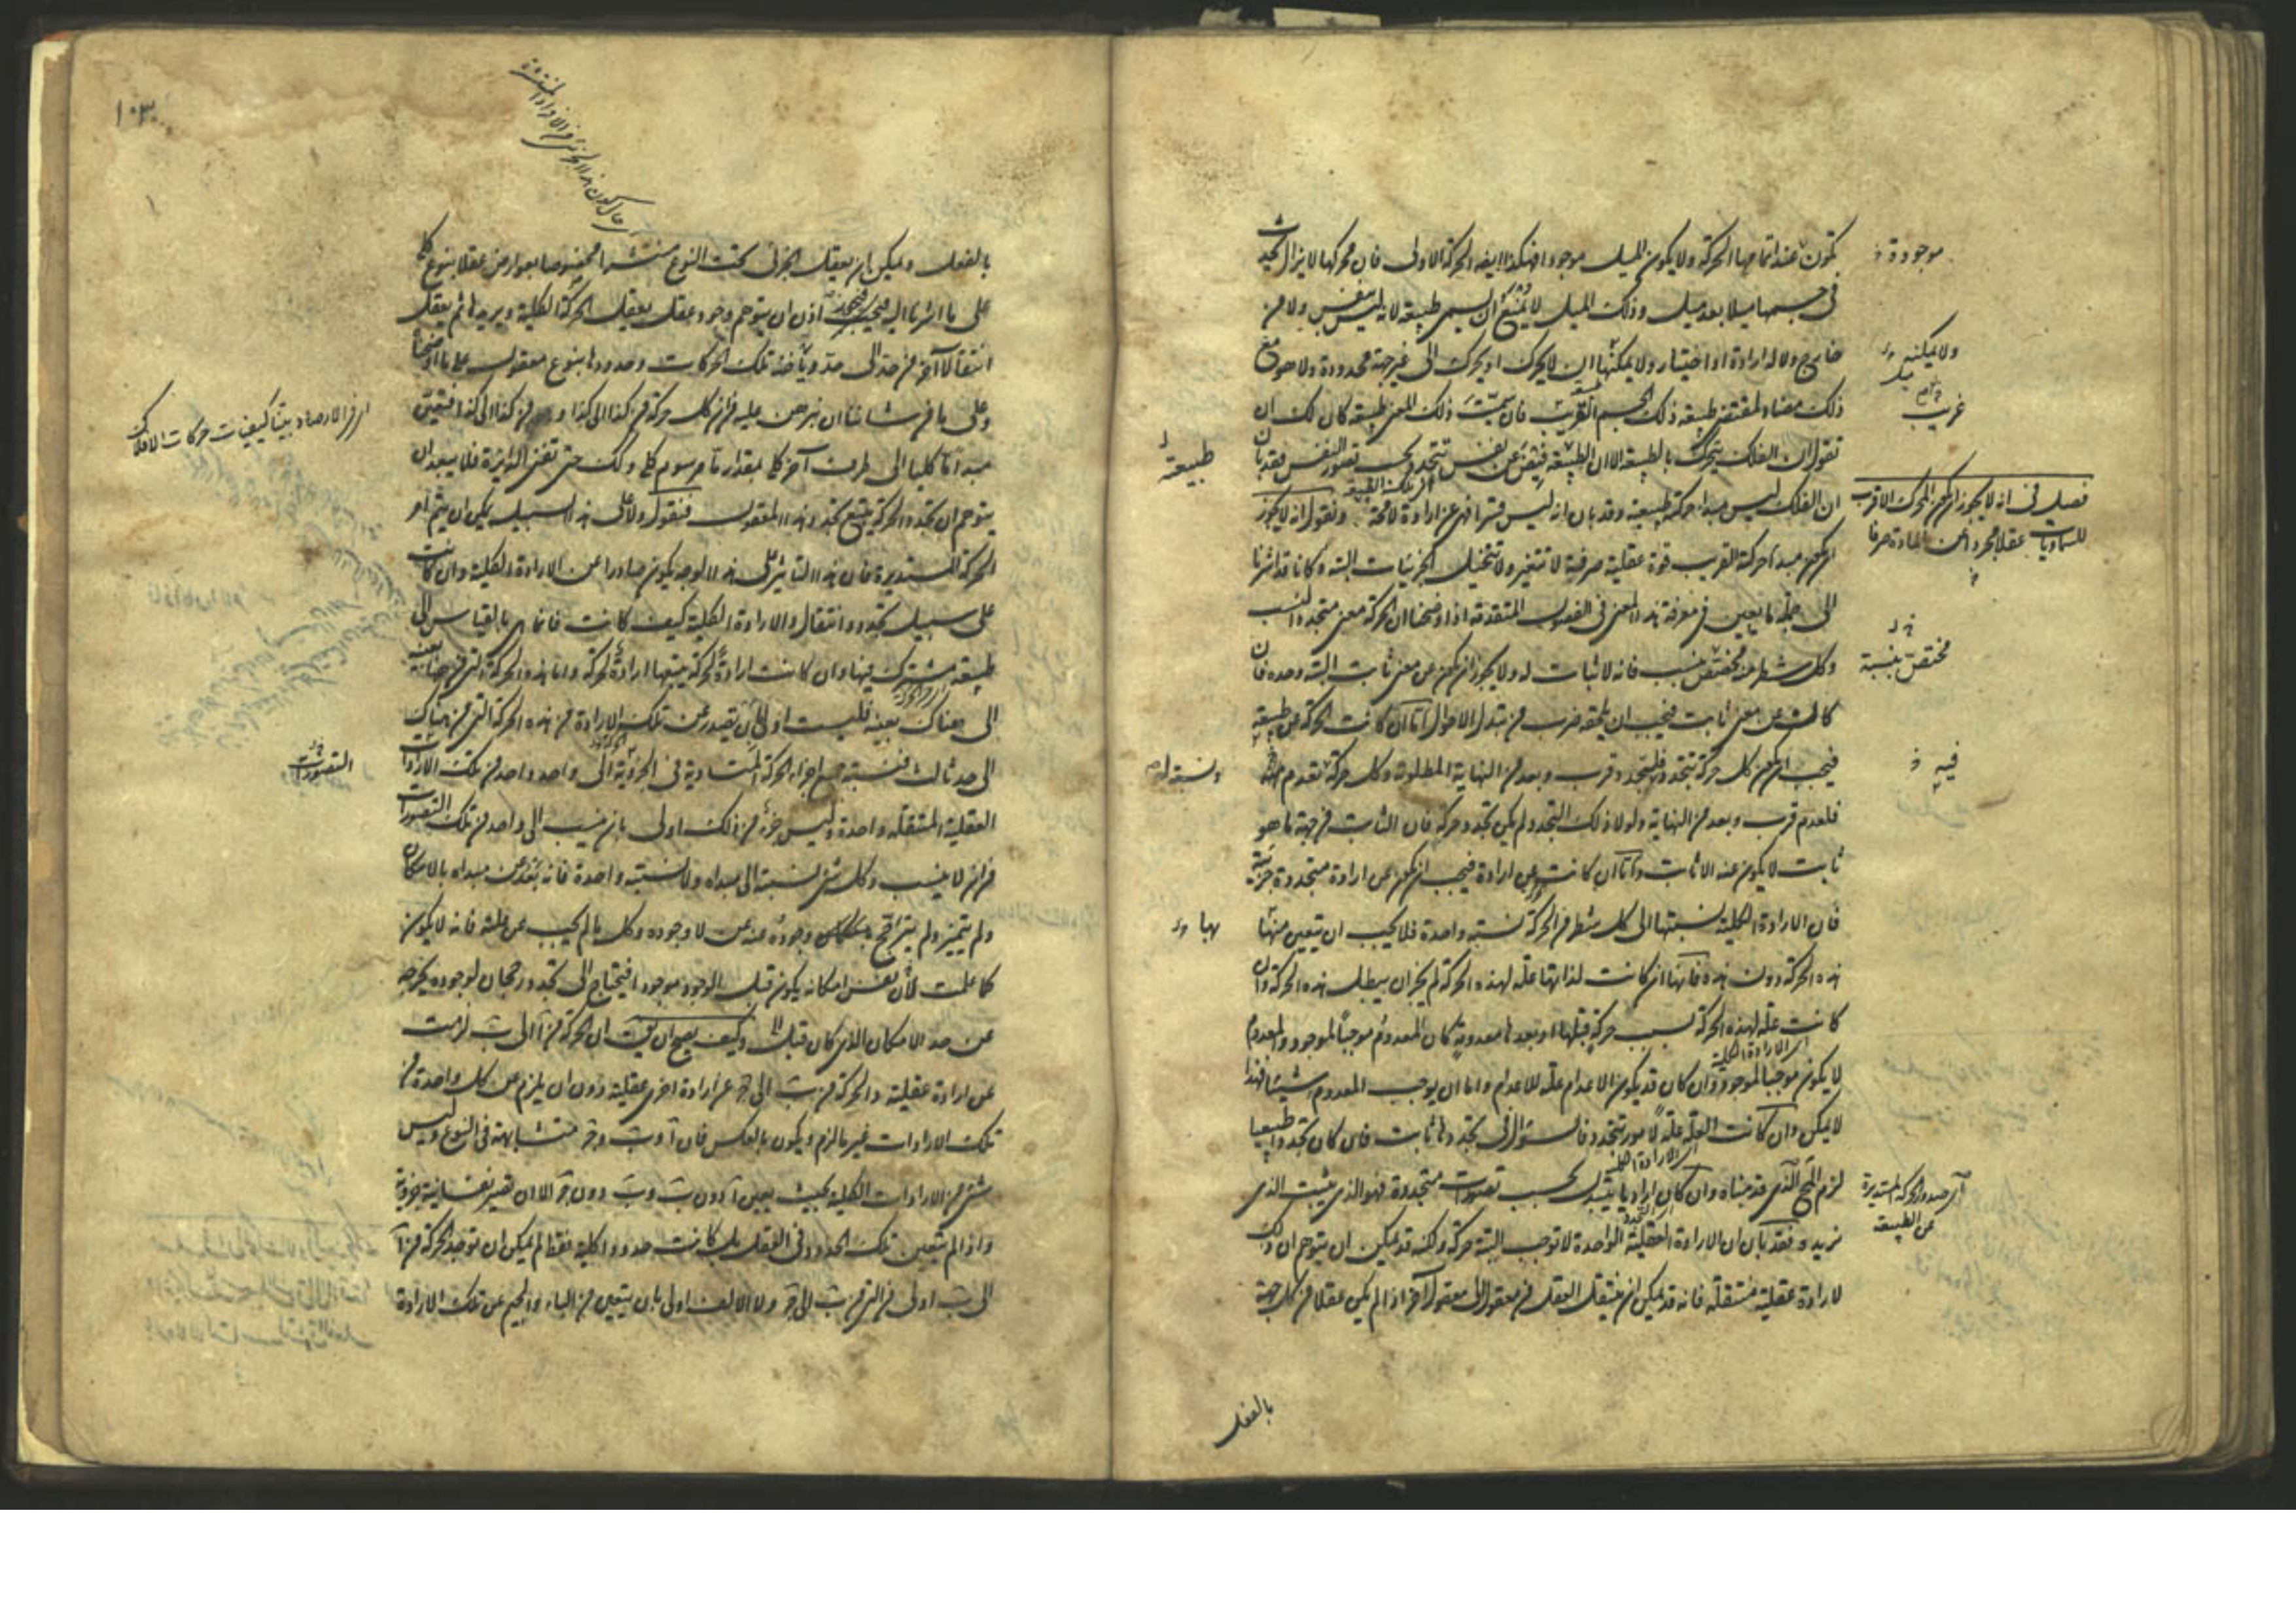 تكون عند اتمامها الحركة ولا يكون الميل موجودا فهكذا ايضا الحركة الاولى فان محركها لا يزال يحدث
فى جسمها ميلا بعد ميل وذلك الميل لا يمتنع ان يسمى طبيعة لانه ليس بنفس ولا من
خارج ولا له ارادة او اختيار ولا يمكنها ان لا يحرك او يحرك الى غير جهة محدودة ولا هو مع
ذلك مضاد لمقتضى طبيعة ذلك الجسم القريب فان سميت ذلك المعنى طبيعة كان لك ان
تقول ان الفلك يتحرك بالطبيعة الا ان الطبيعة فيض عن نفس تتجدد بحسب تصور النفس فقد بان
ان الفلك ليس مبدا حركته طبيعية وقد بان انه ليس قسرا فهى عن ارادة لا محة ونقول انه لا يجوز
ان يكون مبدا حركته القريب قوة عقلية صرفية لا تتغير ولا تتخيل الجزئيات البتة وكانا قد اشرنا
الى جمل مما يعين فى معرفة هذا المعنى فى الفصول المتقدمة اذا اوضحنا ان الحركة معنى متجدد النسب
وكل شطر منه مختص بنسب فانه لا ثبات له ولا يجوز ان يكون عن معنى ثابت البتة وحده فان
كانت عن معنى ثابت فيجب ان يلحقه ضرب من تبدل الاحوال اما ان كانت الحركة عن طبيعة
فيجب ان يكون كل حركة تتجدد فلتجدد قرب وبعد من النهاية المطلوبة وكل حركة تعدم
فلعدم قرب وبعد من النهاية ولولا ذلك التجدد لم يكن تجدد حركة فان الثابت من جهة ما هو
ثابت لا يكون عنه الا ثابت واما ان كانت عن ارادة فيجب ان يكون عن ارادة متجددة جزئية
فان الارادة الكلية نسبتها الى كل شطر من الحركة نسبة واحدة فلا يجب ان تتعين منها
هذه الحركة دون هذه فانها ان كانت لذاتها علة لهذه الحركة لم يجز ان يبطل هذه الحركة وان
كانت علة لهذه الحركة بسبب حركة قبلها او بعدها معدومة كان المعدوم موجبا لموجود والمعدوم
لا يكون موجبا لموجود وان كان قد يكون الاعدام علة للاعدام واما ان يوجب المعدوم شيئا فهذا
لا يمكن وان كانت العلة علة لامور تتجدد فالسؤال فى تجددها ثابت فان كان تجددا طبيعيا
لزم المح الذى قدمناه وان كان اراديا يتبدل بحسب تصورات متجددة فهو الذى يثبت الذى
نريده فقد بان ان الارادة العقلية الواحدة لا توجب البتة حركة ولكنه قد يمكن ان يتوهم ان ذلك
لارادة عقلية منتقلة فانه قد يمكن ان ينتقل العقل من معقول الى معقول آخر اذا لم يكن عقلا من كل جهة
بالفعل
موجودة
ولا يمكنه
غريب
فصل فى انه لا يجوز ان يكون المحرك الاقرب
للسماويات عقلا مجردا عن المادة صرفا
مختص بنسبة
فيه
اى صدور الحركة المستديرة
عن الطبيعة
طبيعة
بها
الارادة الكلية
١٠٣
بالفعل ويمكن ان يعقل الجزئى تحت النوع منتشرا مخصوصا بعوارض عقلا بنوع كلى
على ما اشرنا اليه فيجب اذن ان يتوهم وجود عقل يعقل الحركة الكلية ويريدها ثم يعقل
انتقالا آخر من حد الى حد وياخذ تلك الحركات وحدودها بنوع معقول على ما اوضحنا
وعلى ما من شاننا ان نبرهن عليه من ان كل حركة من كذا الى كذا ومن كذا الى كذا فتعين
مبدا ما كليا الى طرف آخر كلى بمقدار ما مرسوم كلى وكذلك حتى تفنى الدائرة فلا يبعد ان
يتوهم ان تجدد الحركة يتبع تجدد هذا المعقول فنقول ولا على هذا السبيل يمكن ان يتم امر
الحركة المستديرة فان هذا التاثير على هذا الوجه يكون صادرا عن الارادة الكلية وان كانت
على سبيل تجدد وانتقال والارادة الكلية كيف كانت فانما هى بالقياس الى
طبيعة مشترك فيها وان كانت ارادة لحركة يتبعها ارادة لحركة واما هذه الحركة التى من ههنا بعينه
الى هناك بعينه فليست اولى بان تصدر عن تلك الارادة من هذه الحركة التى من هناك
الى حد ثالث فنسبة جميع اجزاء الحركة المتساوية فى الجزئية الى واحد واحد من تلك الارادات
العقلية المنتقلة واحدة وليس جزء من ذلك اولى بان ينسب الى واحد من تلك التصورات
من ان لا ينسب وكل شئ نسبته الى مبداه ولا نسبته واحدة فانه بعد عن مبداه بالامكان
ولم يتميز ولم يترجح وجوده عنه عن لا وجوده وكل ما لم يجب عن علته فانه لا يكون
كما علمت لان نفس امكانه يكون قبل الوجود موجودا فيحتاج الى تجدد رجحان لوجوده يخرجه
عن حد الامكان الذى كان قبل وكيف يصح ان يق ان الحركة من آ الى ب لزمت
عن ارادة عقلية والحركة من ب الى ج عن ارادة اخرى عقلية دون ان يلزم عن كل واحدة من
تلك الارادات غير ما لزم ويكون بالعكس فان آ و ب و ج متشابهة فى النوع وليس
شئ من الارادات الكلية بحيث يعين آ دون ب و ب دون ج الا ان تصير نفسانية جزئية
واذا لم تتعين تلك الحدود فى العقل بل كانت حدودا كلية فقط لم يمكن ان توجد الحركة من آ
الى ب اولى من التى من ب الى ج ولا الالف اولى بان يتعين من الباء والجيم عن تلك الارادة
التصورات